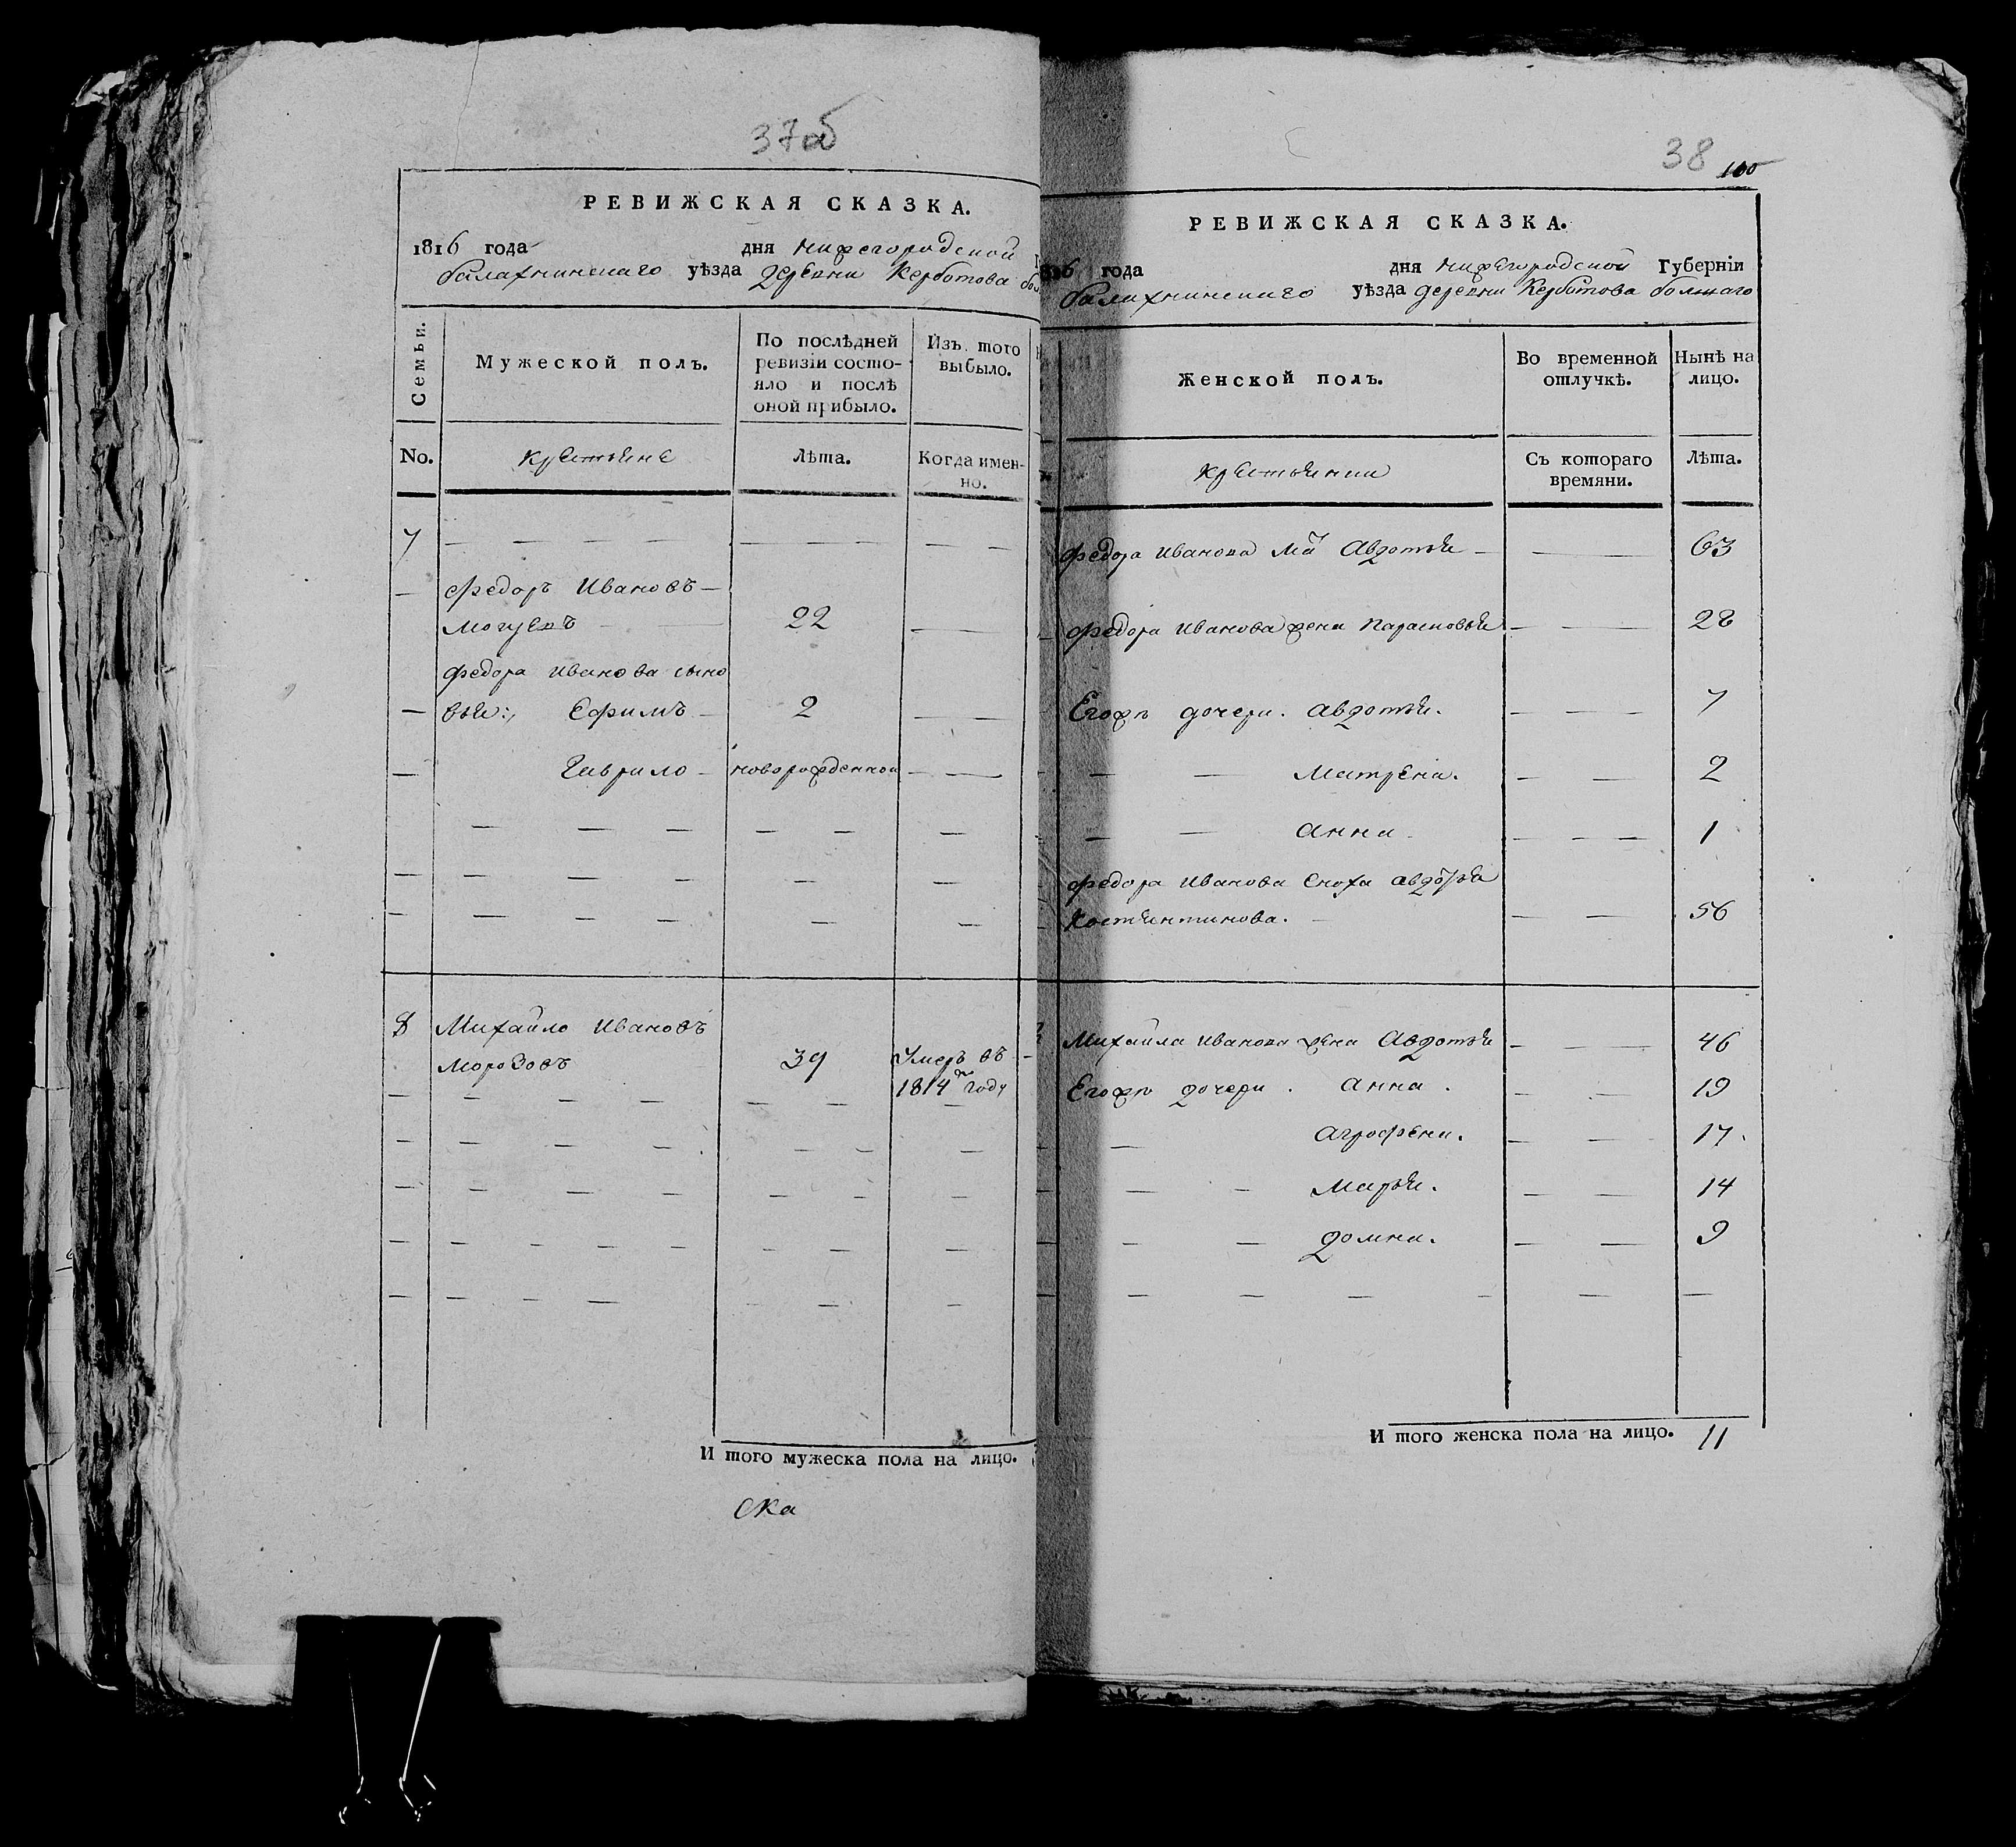 37об
РЕВИЖСКАЯ СКАЗКА.
1816 года дня Нижегородской
балахнинскаго уѣзда деревни Керботова бол
Семьи.
Мужеской полъ.
По послѣдней
ревизіи состо-
яло и послѣ
оной прибыло.
Изъ того
выбыло.
No.
крестьяне
Лѣта.
Когда имен-
но.
7
Федоръ Ивановъ
22
Федора Иванова сыно
вья: Ефимъ 2
Гаврило новорожденной
8 Михайло Ивановъ
Морозовъ 39 Умеръ въ
1814м году
И того мужеска пола на лицо.
Ска
38 100
РЕВИЖСКАЯ СКАЗКА.
1816 года дня Нижегородской Губерніи
балахнинскаго уѣзда деревни Керботова болшаго
Женской полъ.
Во временной
отлучкѣ.
Нынѣ на
лицо.
крестьянки
Съ котораго
времяни.
Лѣта.
Федора Иванова Авдотья 63
Федора Иванова жена Парасковья 28
Егожъ дочери. Авдотья. 7
Матрена. 2
Анна 1
Федора Иванова сноха
Костянтинова. 56
Михайла Иванова жена Авдотья 46
Егожъ дочери. Анна. 19
Агрофена. 17.
Марья. 14
Домна. 9
И того женска пола на лицо. 11